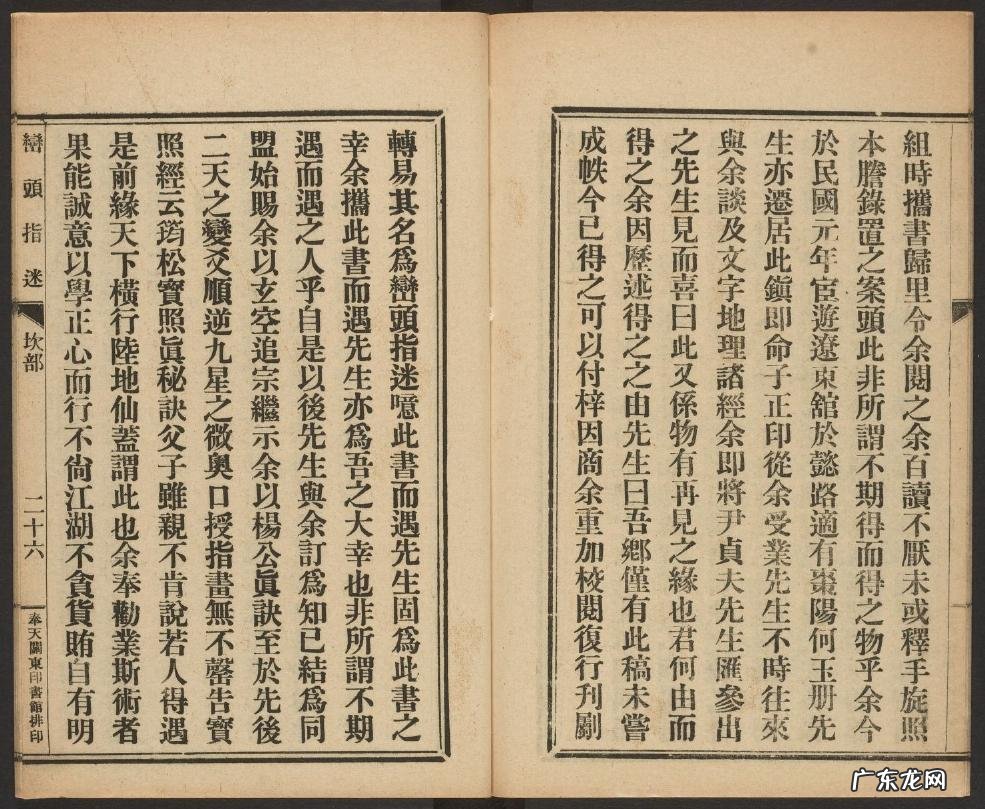 組時攜書歸里令余閱之余百讀不厭未或釋手旋照
本謄錄置之案頭此非所謂不期得而得之物乎余今
於民國元年宦遊遼東舘於懿路適有棗陽何玉册先
生亦遷居此鎭即命子正印從余受業先生不時往來
與余談及文字地理諸經余即將尹貞夫先生匯參出
之先生見而喜曰此又係物有再見之緣也君何由而
得之余因歷述得之之由先生曰吾鄉僅有此稿未嘗
成帙今已得之可以付梓因商余重加校閱復行刋劂
轉易其名爲巒頭指迷噫此書而遇先生固爲此書之
幸余攜此書而遇先生亦爲吾之大幸也非所謂不期
遇而遇之人乎自是以後先生與余訂爲知已結爲同
盟始賜余以玄空追宗繼示余以楊公眞訣至於先後
二天之變爻順逆九星之微奧口授指畫無不罄告寳
照經云筠松寳照眞秘訣父子雖親不肯說若人得遇
是前緣天下橫行陸地仙蓋謂此也余奉勸業斯術者
果能誠意以學正心而行不尙江湖不貪貨賄自有明
巒頭指迷
坎部
二十六
奉天關東印書館排印
广东龙网